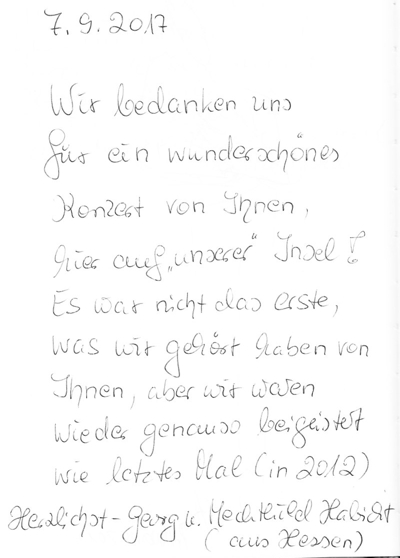 7.9.2017
Wir bedanken uns
für ein wunderschönes
Konzert von Ihnen,
hier auf „unserer" Insel!
Es war nicht das erste,
was wir gehört haben von
Ihnen, aber wir waren
wieder genauso beigeistert
wie letztes Mal (in 2012)
Herzlichst - Georg u. Mechthild Habicht
(aus Hessen)